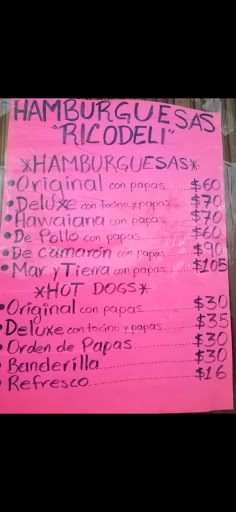 HAMBURGUESAS
"RICODELI"
*HAMBURGUESAS*
•Original con papas.....$60
•Deluxe con tocino y papas....$70
•Hawaiana con papas....$70
•De Pollo con papas.....$60
•De Camarón con papas....$90
•Mar y Tierra con papas.....$105
*HOT DOGS*
•Original con papas.........$30
•Deluxe con tocino y papas......$35
•Orden de Papas..............$30
•Banderilla....................$30
•Refresco.....................$16